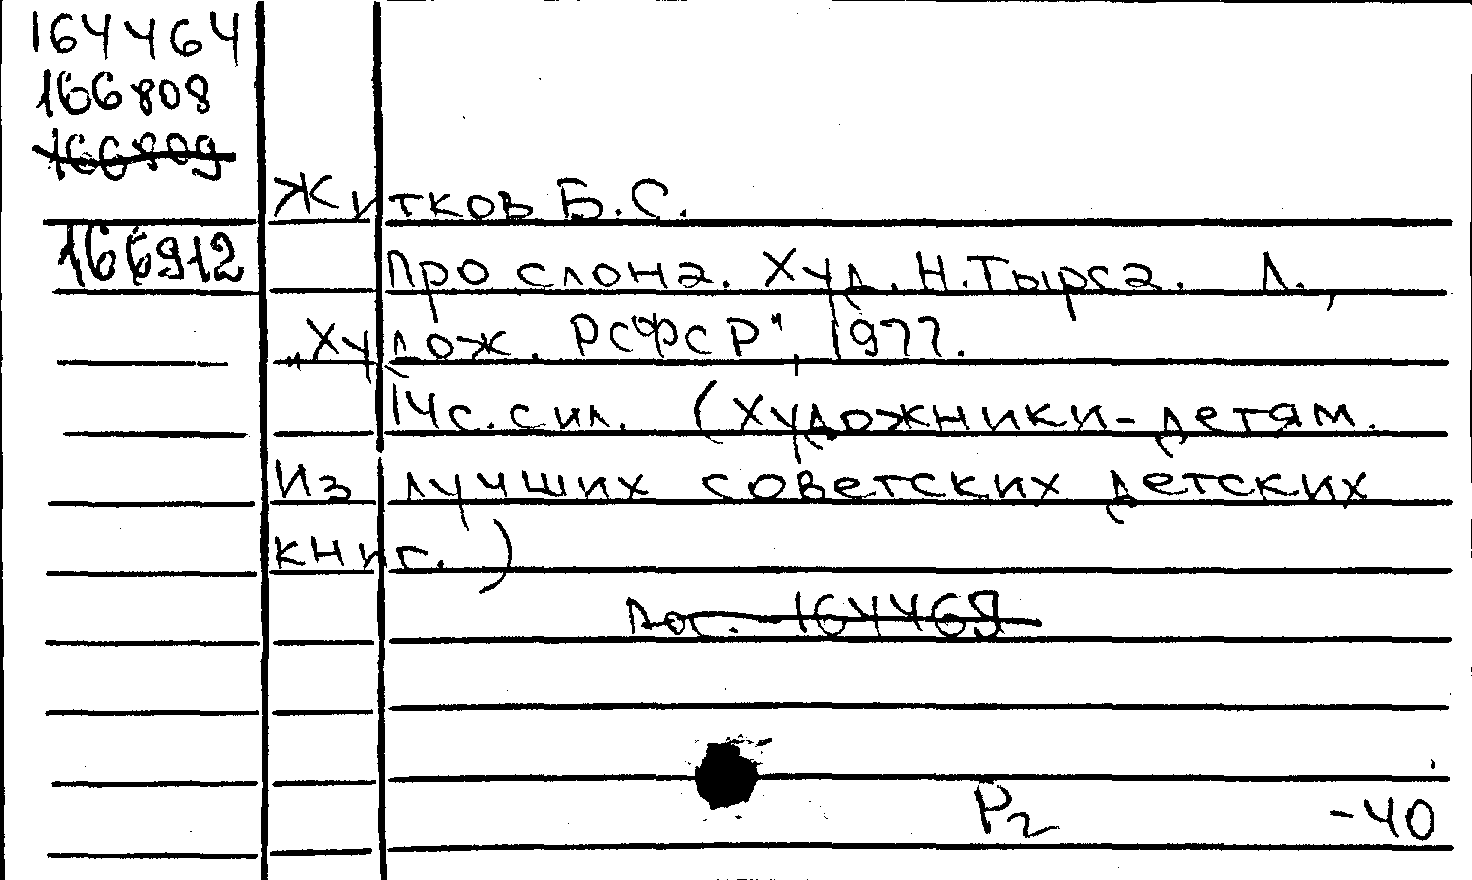 164464
166808
166809
Житков Б.С.
166912
Про слона. Худ. Н.Тырса. Л.,
„Худож. РСФСР", 1977.
14с. с ил. (Художники-детям.
Из лучших советских детских
книг.)
164469
Р2 -40